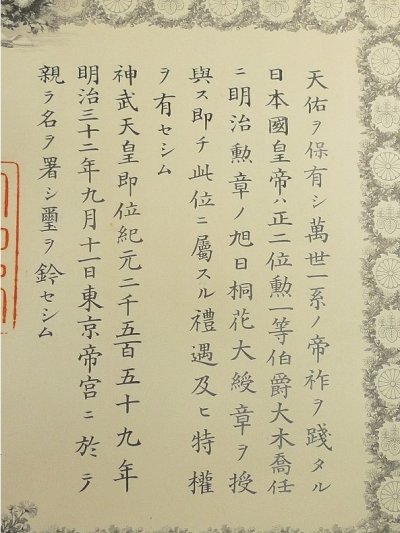 天佑ヲ保有シ萬世一系ノ帝祚ヲ踐タル
日本國皇帝ハ正二位勲一等伯爵大木喬任
ニ明治勲章ノ旭日桐花大綬章ヲ授
與ス即チ此位ニ屬スル禮遇及ヒ特權
ヲ有セシム
神武天皇即位紀元二千五百五十九年
明治三十二年九月十一日東京帝宮ニ於テ
親ラ名ヲ署シ璽ヲ鈐セシム